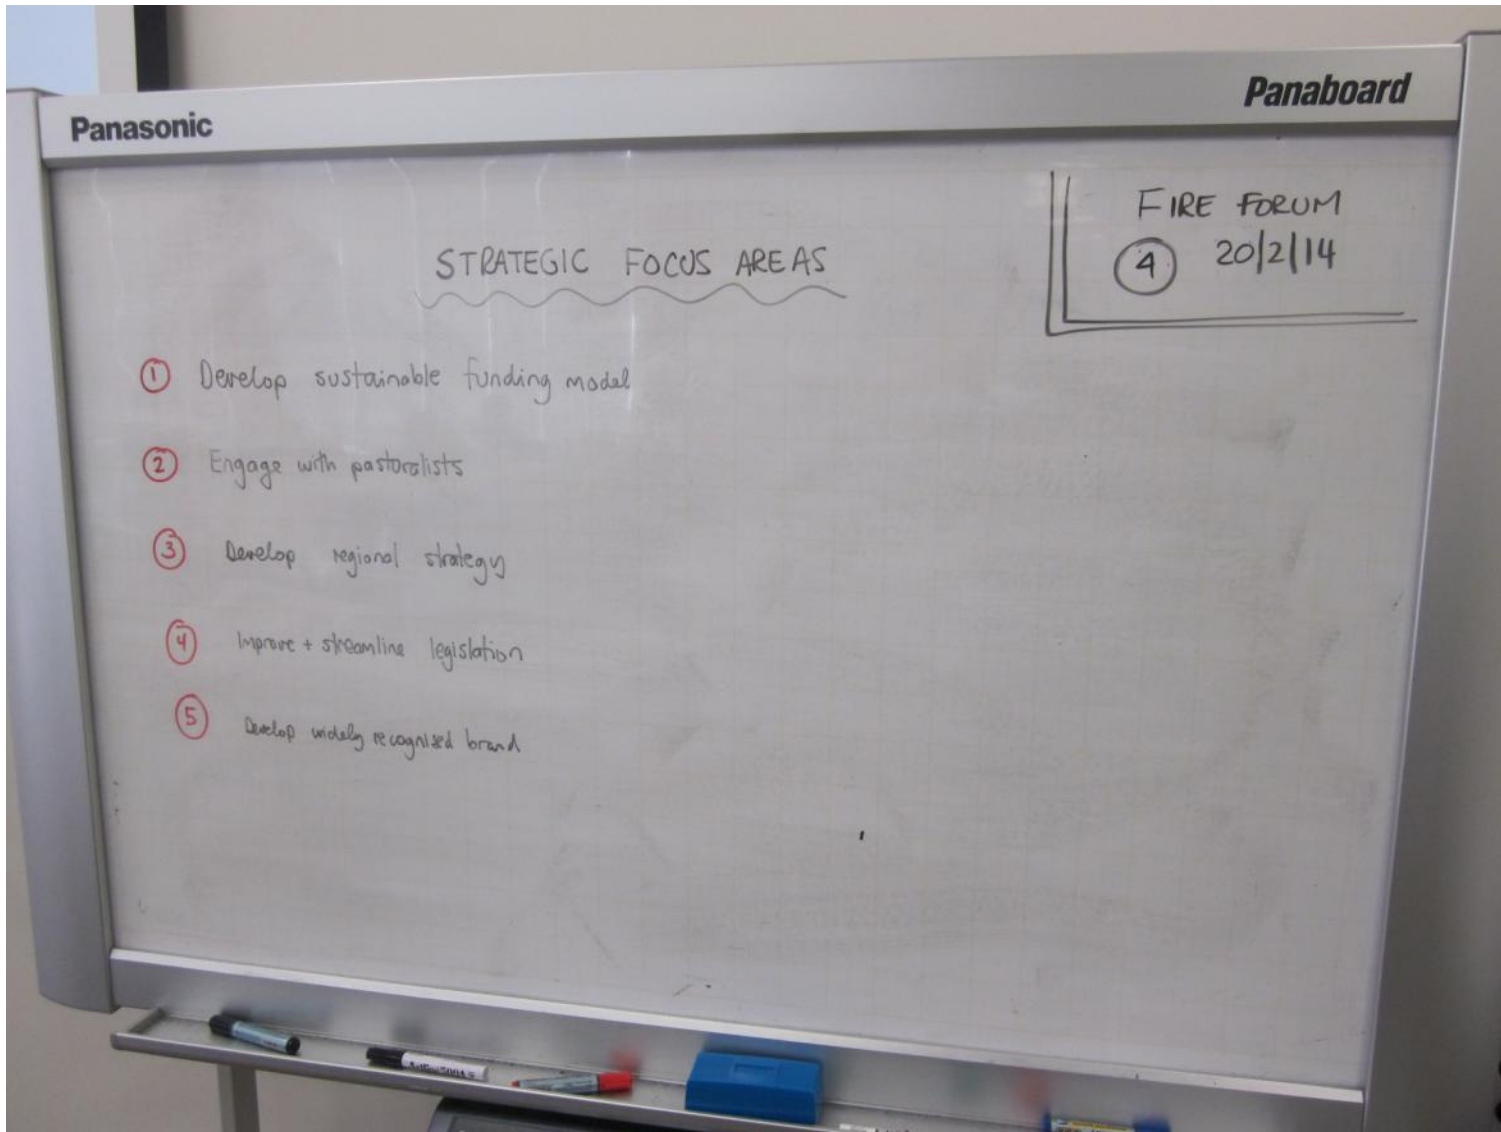 Panasonic
Panaboard
FIRE FORUM
4 20/2/14
STRATEGIC FOCUS AREAS
1 Develop sustainable funding model
2 Engage with pastoralists
3 Develop regional strategy
4 Improve + streamline legislation
5 Develop widely recognised brand